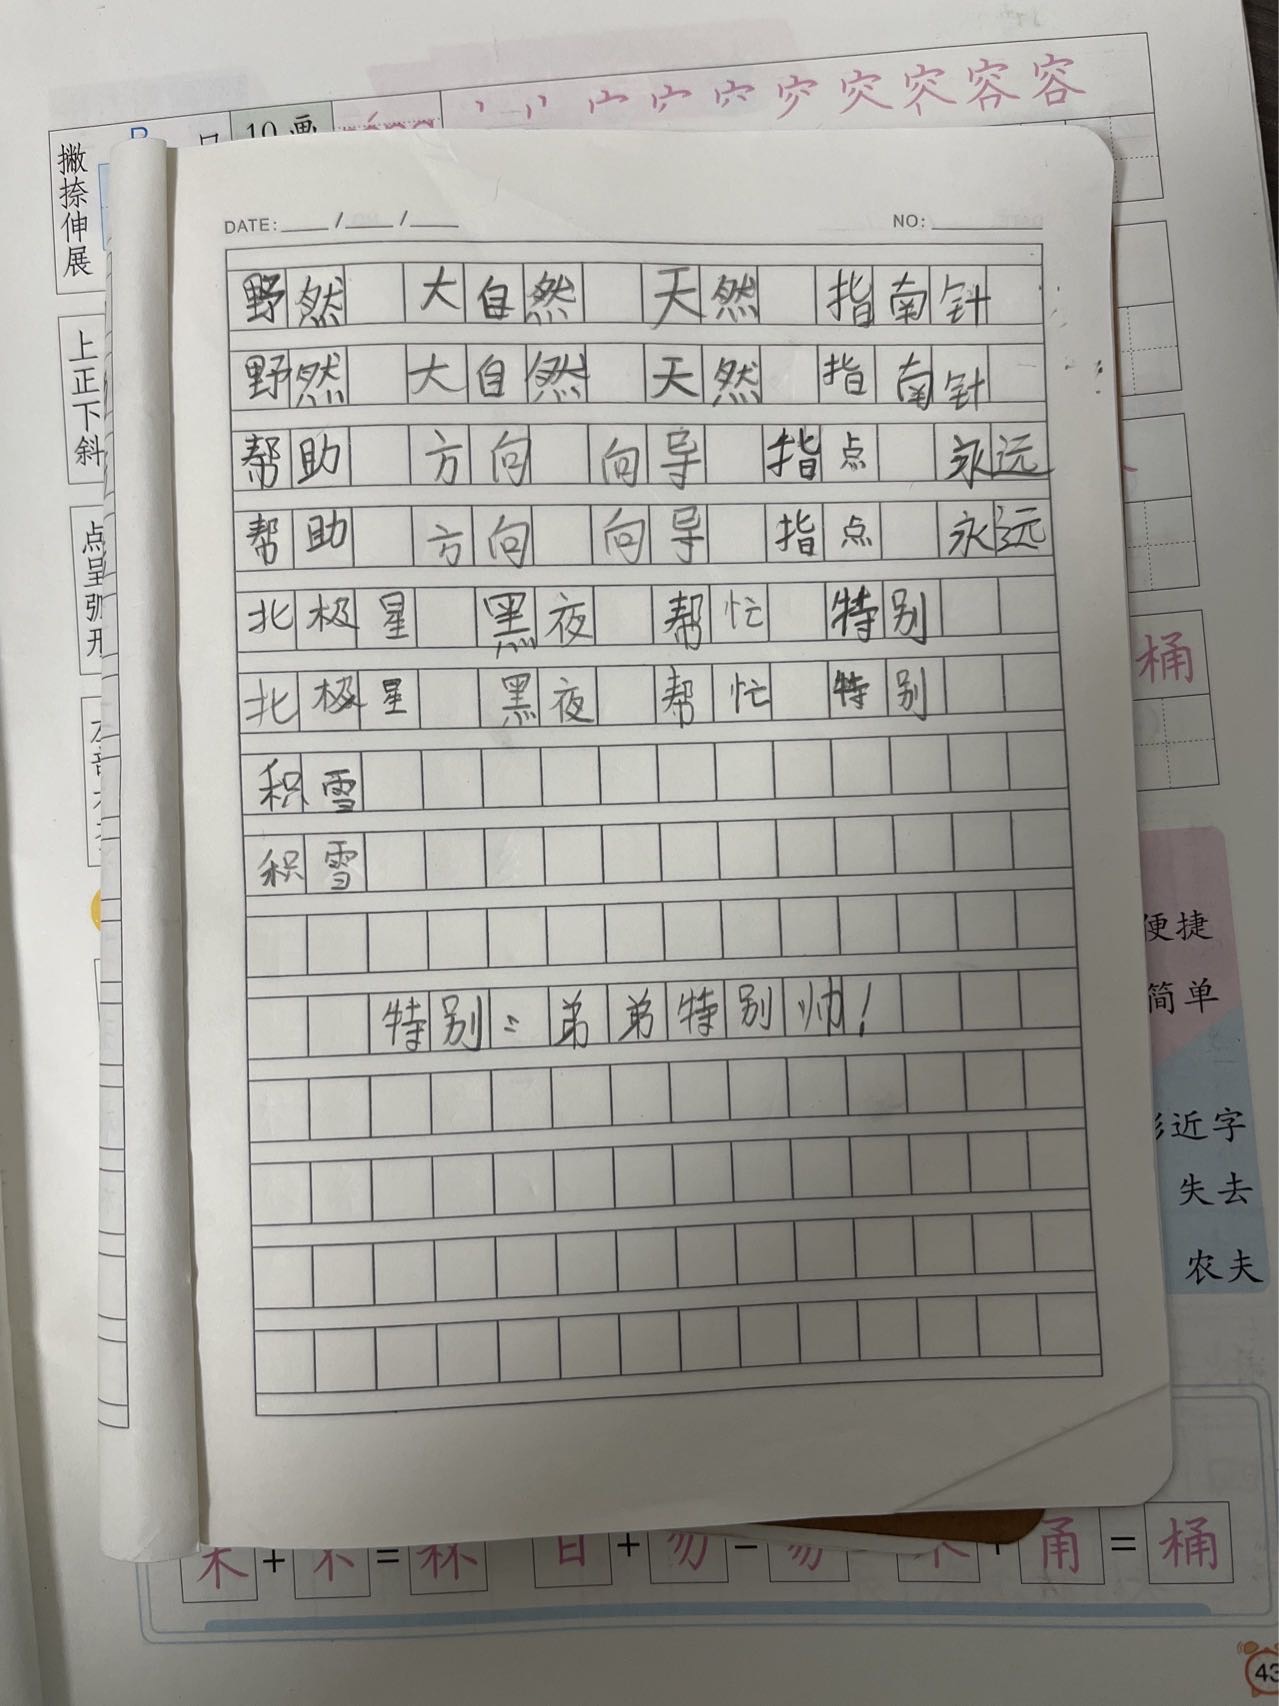 丶 丷 宀 宀 宀 穴 灾 容 容 容
10画
撇捺伸展
DATE: ____ / ____ / ____ NO: ____
野然 大自然 天然 指南针
野然 大自然 天然 指南针
上正下斜
帮助 方向 向导 指点 永远
帮助 方向 向导 指点 永远
点呈弧形
北极星 黑夜 帮忙 特别
北极星 黑夜 帮忙 特别
桶
积雪
积雪
便捷
简单
特别：弟弟特别帅！
近字
失去
农夫
甬 = 桶
43